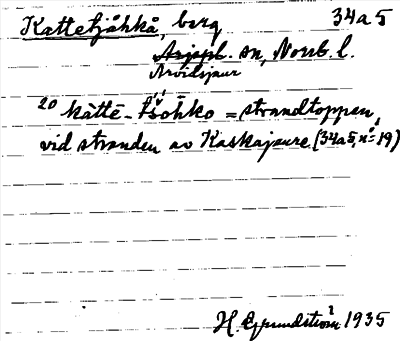 Kattetjåhkå, berg 34a5
Arjepl. sn, Norrb. l.
Arvidsjaur
20 kàttē-tšŏhko = strandtoppen,
vid stranden av Kaskajaure (34a5, n:19)
H. Grundström 1935